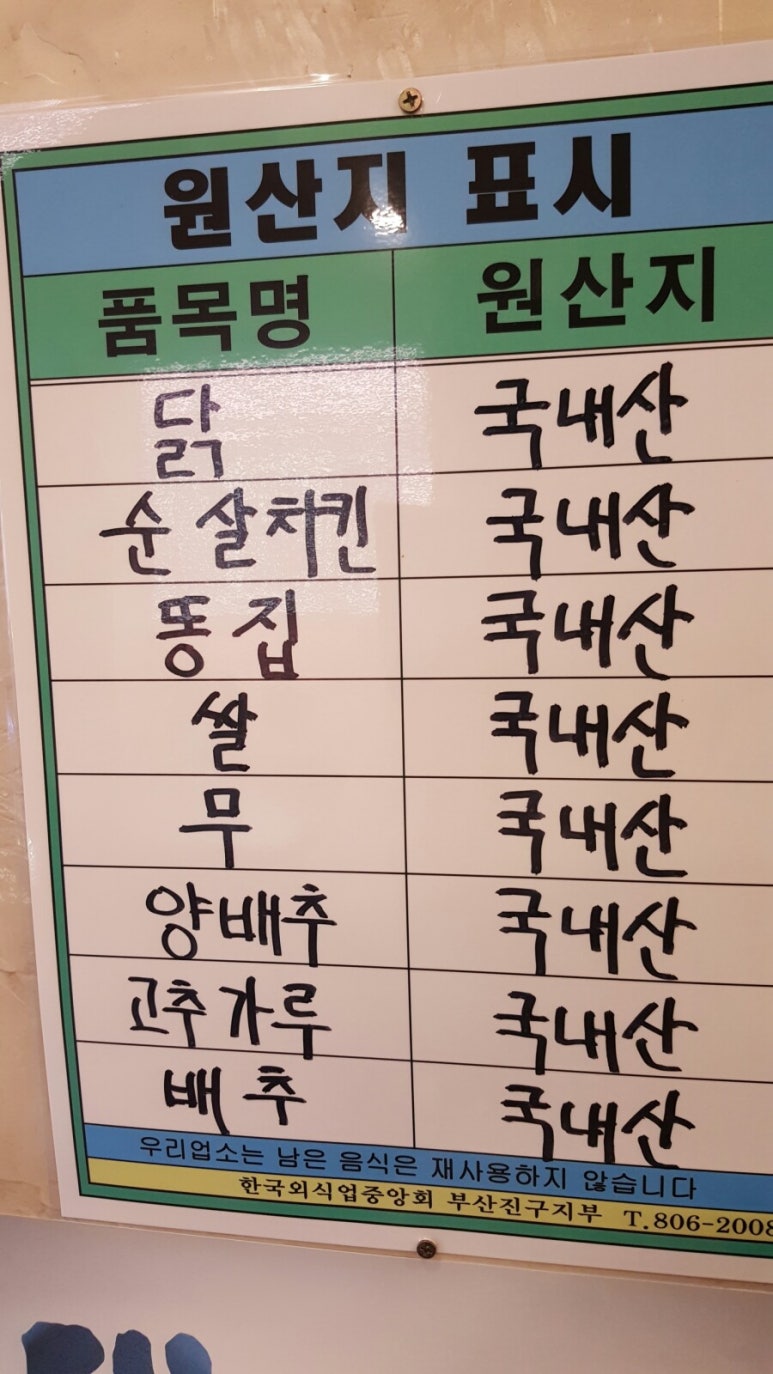 원산지 표시
품목명 원산지
닭 국내산
순살치킨 국내산
똥집 국내산
쌀 국내산
무 국내산
양배추 국내산
고추가루 국내산
배추 국내산
우리업소는 남은 음식은 재사용하지 않습니다
한국외식업중앙회 부산진구지부 T.806-2008